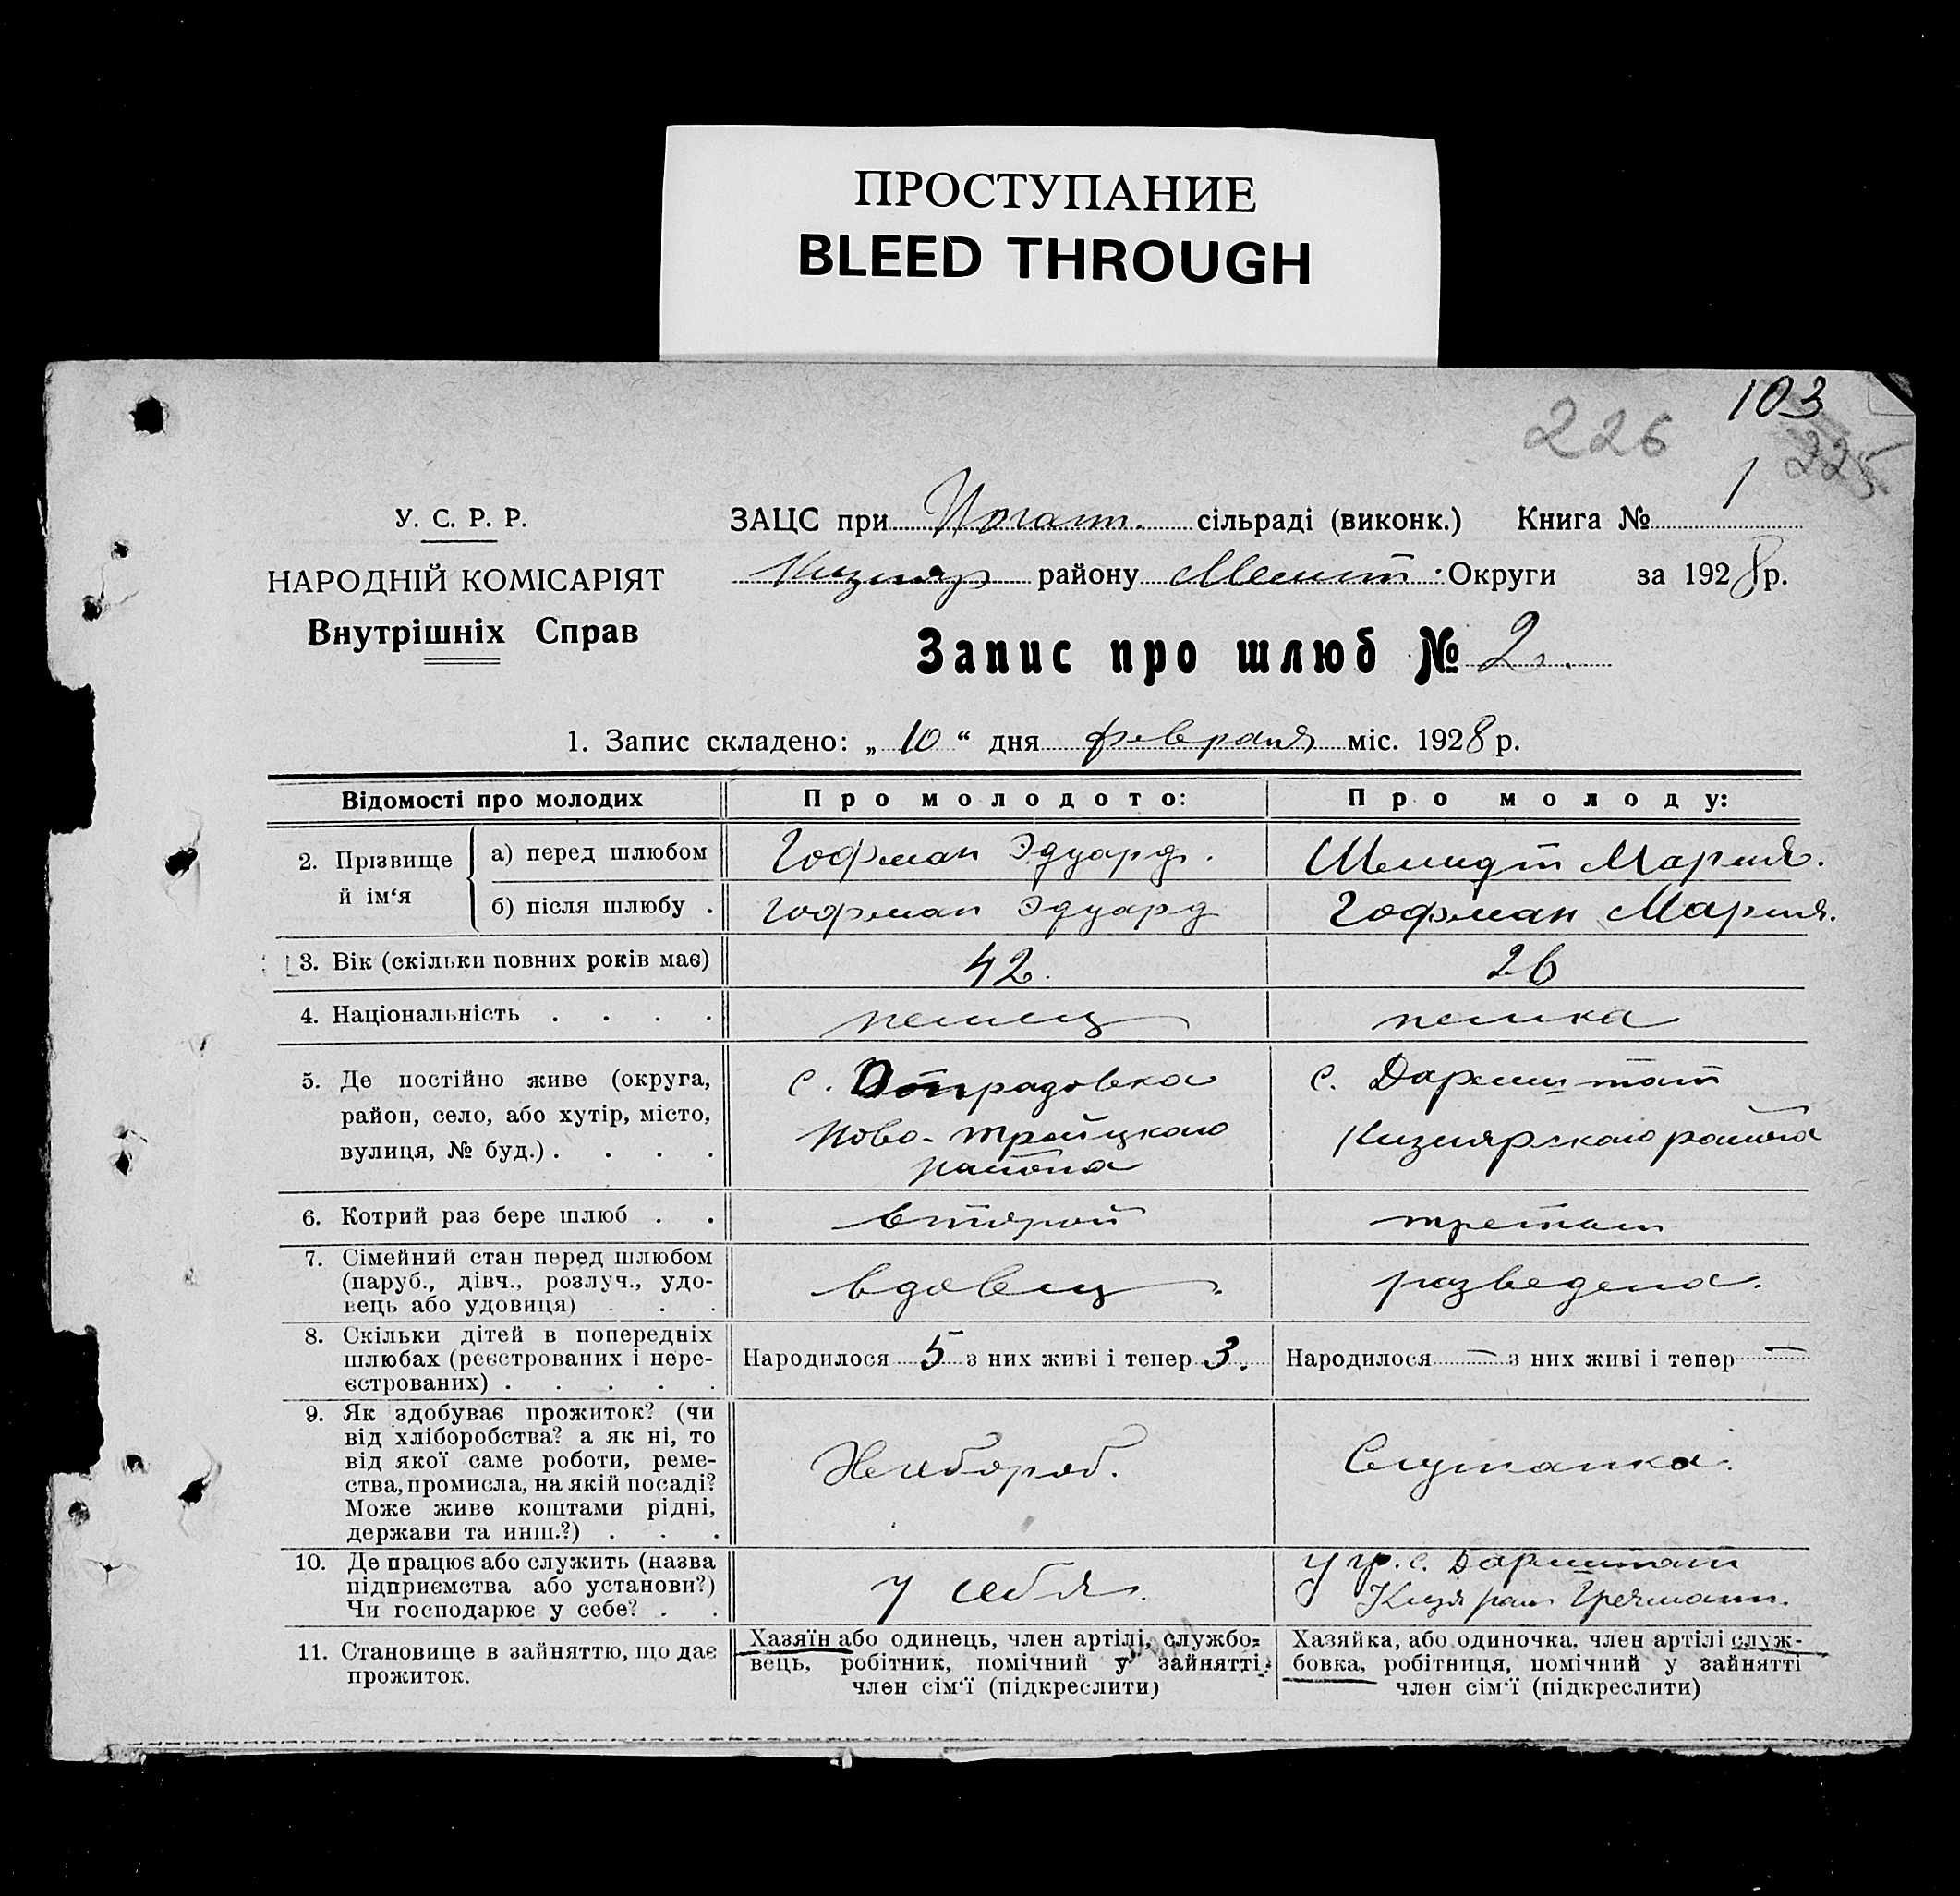 ПРОСТУПАНИЕ
BLEED THROUGH
103
226
225
У. С. Р. Р.
НАРОДНІЙ КОМІСАРІЯТ
Внутрішніх Справ
ЗАЦС при сільраді (виконк.) Книга № 1
Кизияр району Мелит. Округи за 1928 р.
Запис про шлюб № 2.
1. Запис складено: „ 10 “ дня февраля міс. 1928 р.
Відомості про молодих
Про молодого:
Про молоду:
2. Прізвище й ім‘я
а) перед шлюбом
Гофман Эдуард.
Шмидт Мария.
б) після шлюбу .
Гофман Эдуард
Гофман Мария.
3. Вік (скільки повних років має)
42.
26
4. Національність . . . .
немец
немка
5. Де постійно живе (округа,
район, село, або хутір, місто,
вулиця, № буд.) . . . .
с. Отрадовка
Ново-Троицкого
района
с. Дармштат
Кизиярского района
6. Котрий раз бере шлюб . .
второй
третий
7. Сімейний стан перед шлюбом
(паруб., дівч., розлуч., удо-
вець або удовиця) . . .
вдовец
разведена.
8. Скільки дітей в попередніх
шлюбах (реєстрованих і нере-
єстрованих) . . . . .
Народилося 5 з них живі і тепер 3.
Народилося — з них живі і тепер —
9. Як здобуває прожиток? (чи
від хліборобства? а як ні, то
від якої саме роботи, реме-
ства, промисла, на якій посаді?
Може живе коштами рідні,
держави та инш.?) . . .
Хлебороб.
Служанка.
10. Де працює або служить (назва
підприємства або установи?)
Чи господарює у себе? . .
у себя.
у гр. с. Дармштат
11. Становище в зайняттю, що дає
прожиток.
Хазяїн або одинець, член артілі, службо-
вець, робітник, помічний у зайнятті
член сім‘ї (підкреслити)
Хазяйка, або одиночка, член артілі служ-
бовка, робітниця, помічний у зайнятті
член сім‘ї (підкреслити)